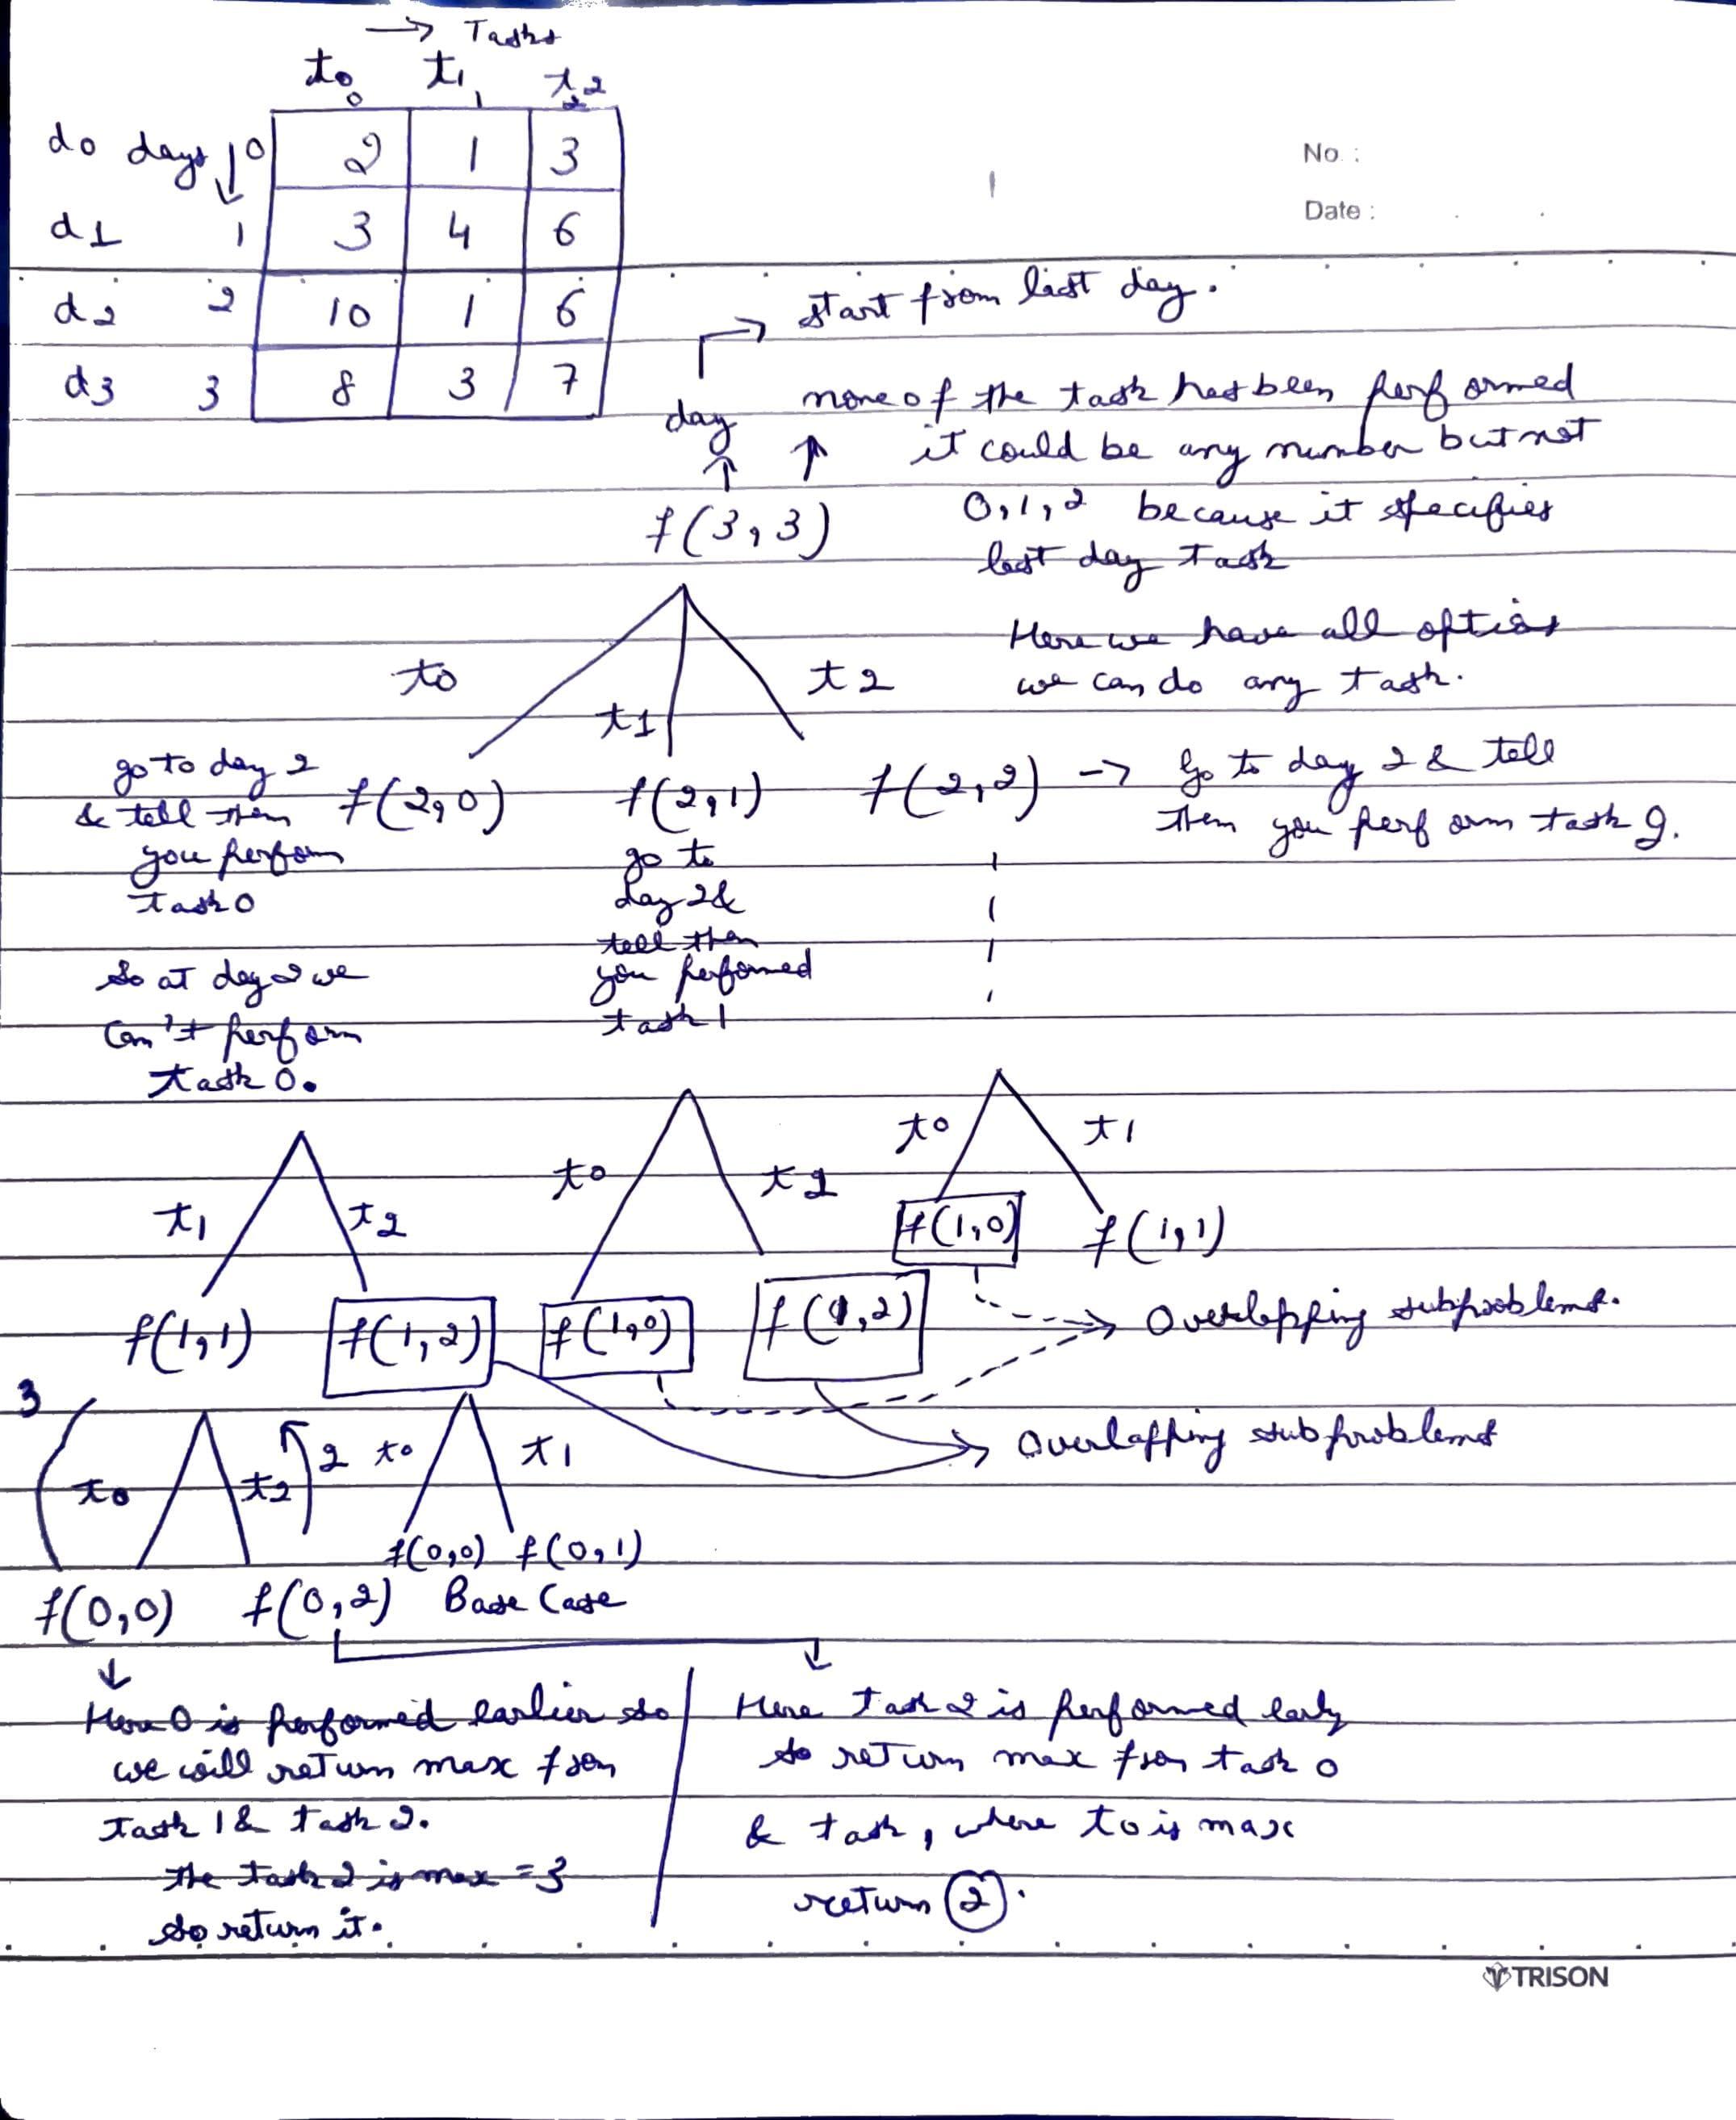 → Tasks
t0 t1 t2
0 1 2
d0 days ↓ 0 2 1 3
d1 1 3 4 6
d2 2 10 1 6
d3 3 8 3 7
No. :
Date :
start from last day.
day
none of the task has been performed
it could be any number but not
0,1,2 because it specifies
last day task
f(3,3)
Here we have all options
we can do any task.
t0 t1 t2
go to day 2
& tell them
you perform
task 0
f(2,0) f(2,1) f(2,2) → Go to day 2 & tell
them you perform task 2.
go to
day 2 &
tell them
you performed
task 1
So at day 2 we
Can't perform
task 0.
t1 t2 t0 t2 t0 t1
f(1,1) f(1,2) f(1,0) f(1,2) f(1,0) f(1,1)
Overlapping subproblems.
Overlapping subproblems
3 t0 t2 2 t0 t1
f(0,0) f(0,1)
f(0,0) f(0,2) Base Case
Here 0 is performed earlier so
we will return max from
Task 1 & task 2.
the task 2 is max = 3
so return it.
Here task 2 is performed early
so return max from task 0
& task 1 where t0 is max
return 2.
TRISON